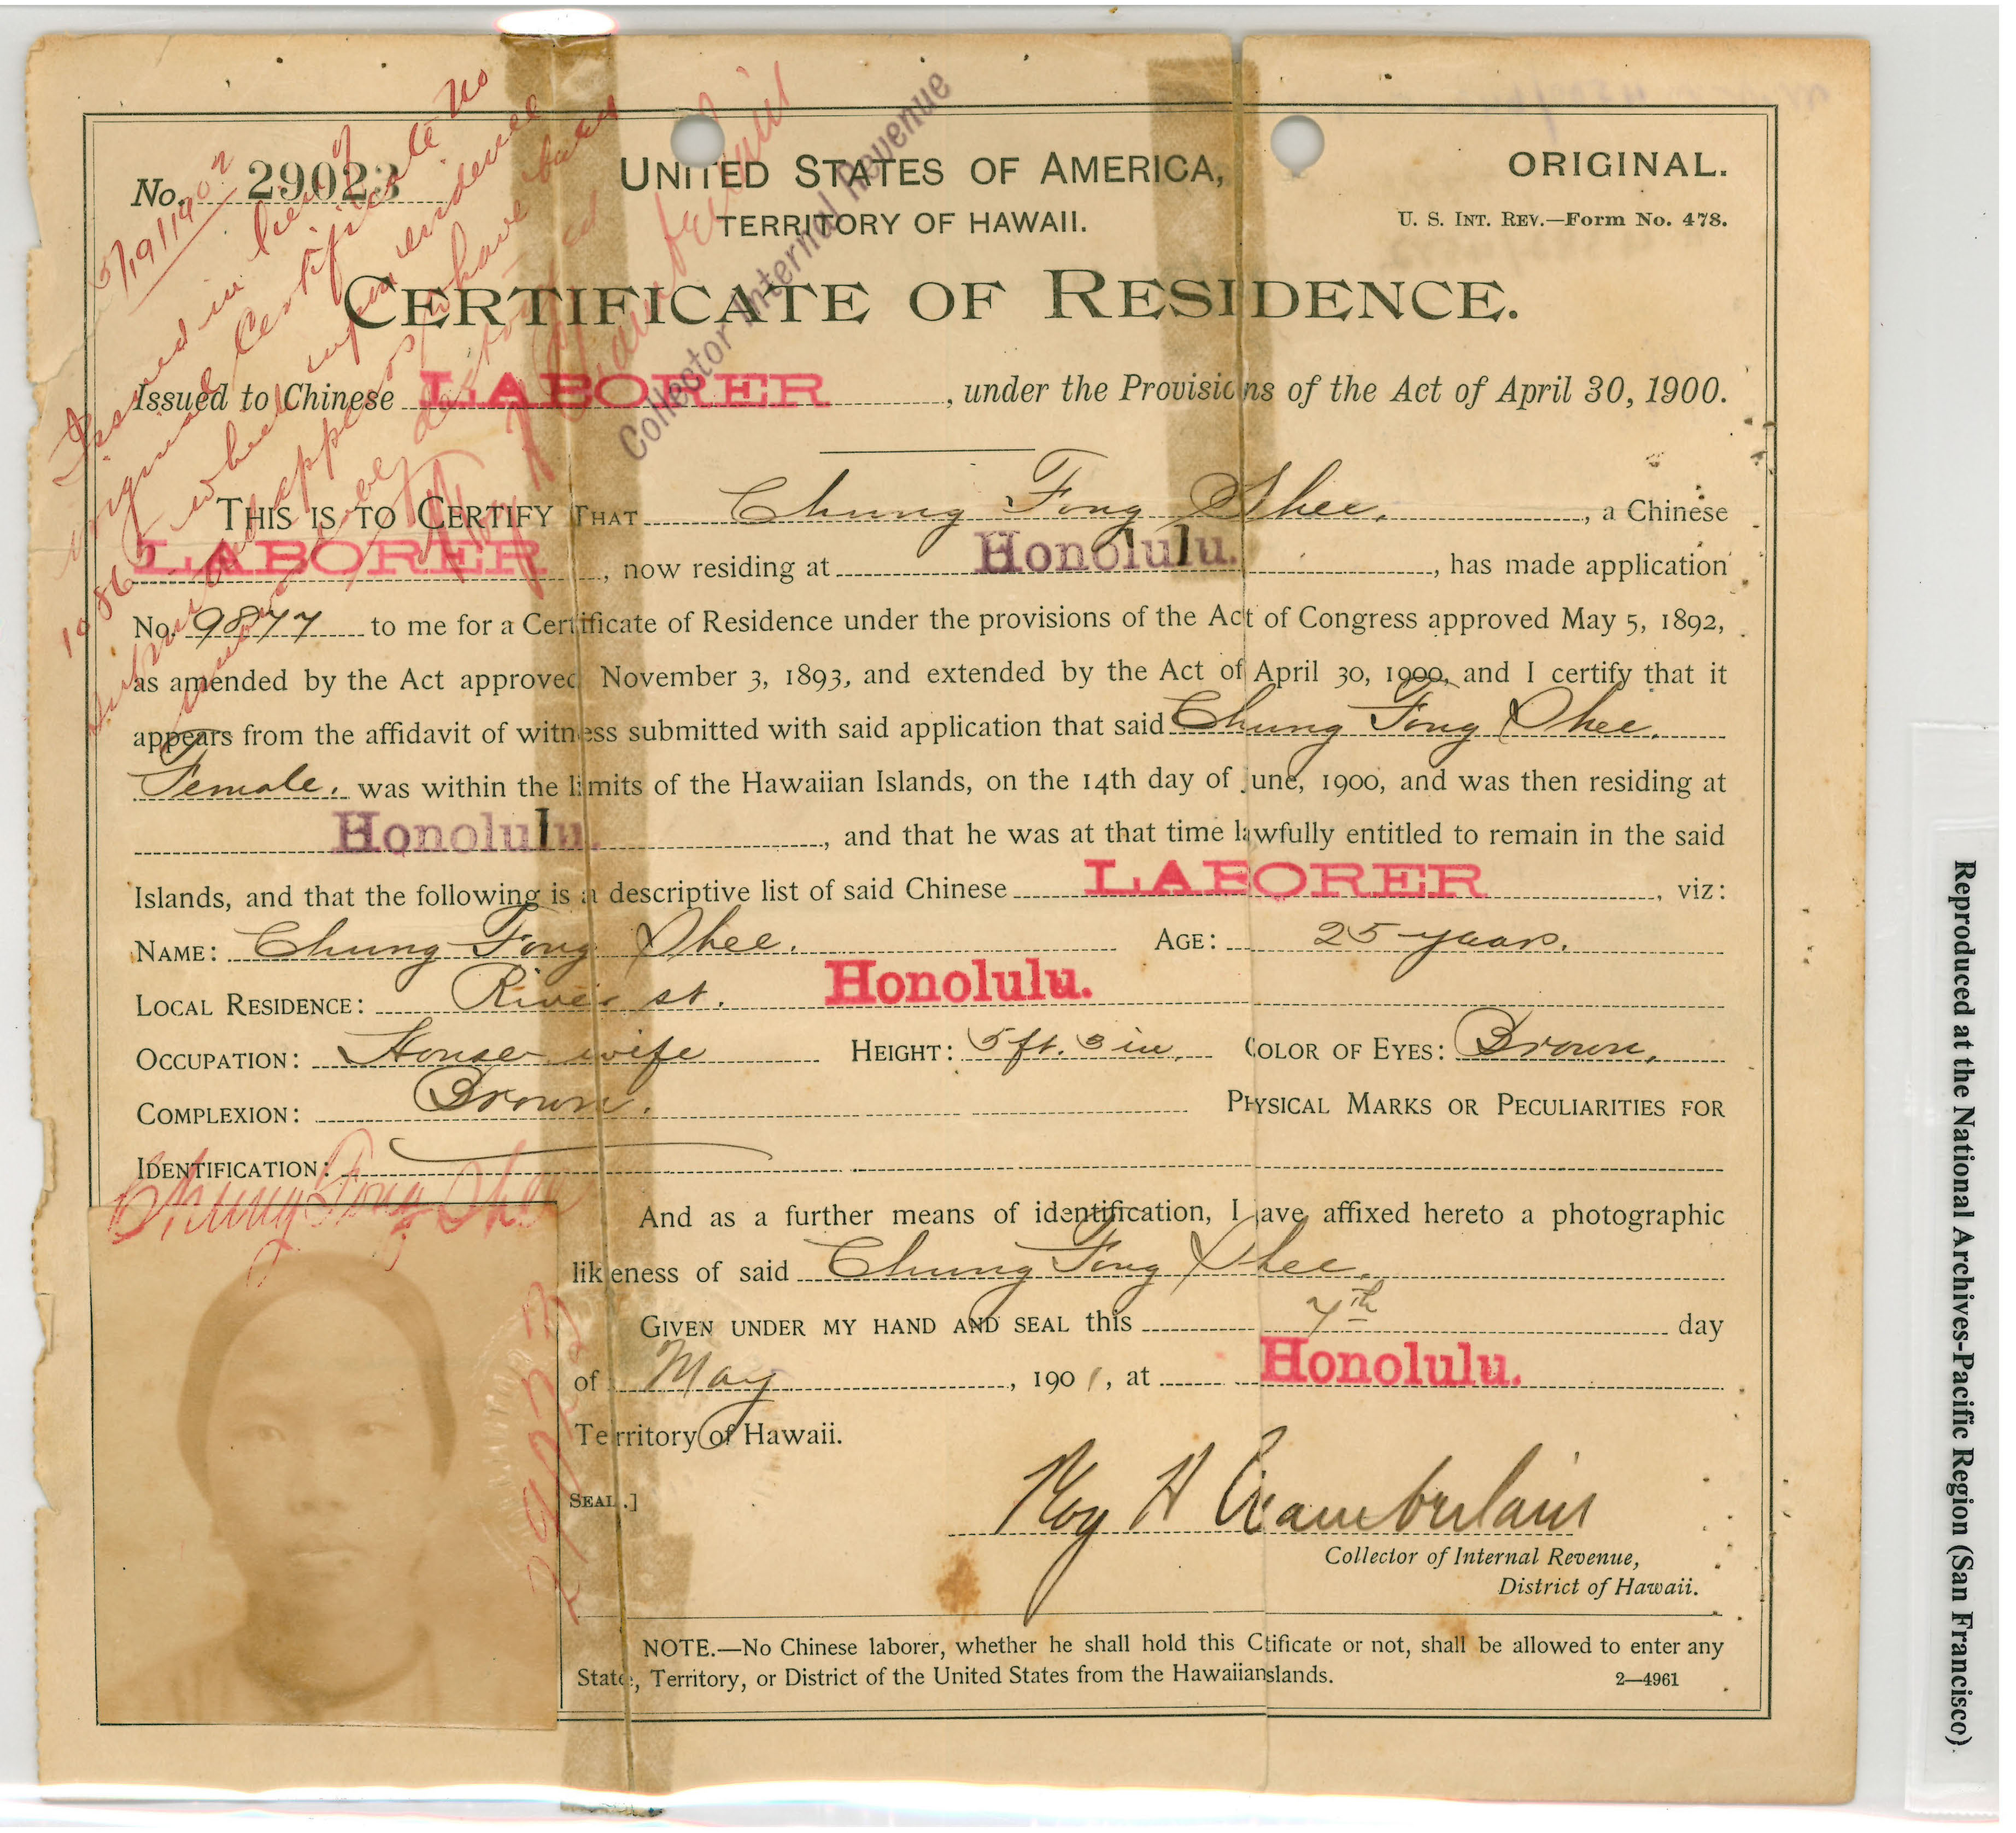 No. 29023
UNITED STATES OF AMERICA,
TERRITORY OF HAWAII.
ORIGINAL.
U. S. INT. REV.—FORM NO. 478.
CERTIFICATE OF RESIDENCE.
Issued to Chinese LABORER, under the Provisions of the Act of April 30, 1900.
THIS IS TO CERTIFY THAT Chung Fong Shee, a Chinese
LABORER, now residing at Honolulu., has made application
No. 9877 to me for a Certificate of Residence under the provisions of the Act of Congress approved May 5, 1892,
as amended by the Act approved November 3, 1893, and extended by the Act of April 30, 1900, and I certify that it
appears from the affidavit of witness submitted with said application that said Chung Fong Shee.
Female. was within the limits of the Hawaiian Islands, on the 14th day of June, 1900, and was then residing at
Honolulu., and that he was at that time lawfully entitled to remain in the said
Islands, and that the following is a descriptive list of said Chinese LABORER, viz:
NAME: Chung Fong Shee. AGE: 25 years.
LOCAL RESIDENCE: River st. Honolulu.
OCCUPATION: House wife HEIGHT: 5 ft. 3 in. COLOR OF EYES: Brown.
COMPLEXION: Brown. PHYSICAL MARKS OR PECULIARITIES FOR
IDENTIFICATION:
And as a further means of identification, I have affixed hereto a photographic
likeness of said Chung Fong Shee.
GIVEN UNDER MY HAND AND SEAL this 7th day
of May, 1901, at Honolulu.
Territory of Hawaii.
SEAL.]
Roy H Chamberlain
Collector of Internal Revenue,
District of Hawaii.
NOTE.—No Chinese laborer, whether he shall hold this Ctificate or not, shall be allowed to enter any
State, Territory, or District of the United States from the Hawaiianslands. 2—4961
5/19/1902
Issued in lieu of
original Certificate No
1986 when upon evidence
submitted appears to have been
destroyed
Roy H Chamberlain
Collector Internal Revenue
Chung Fong Shee
29023
Reproduced at the National Archives-Pacific Region (San Francisco).